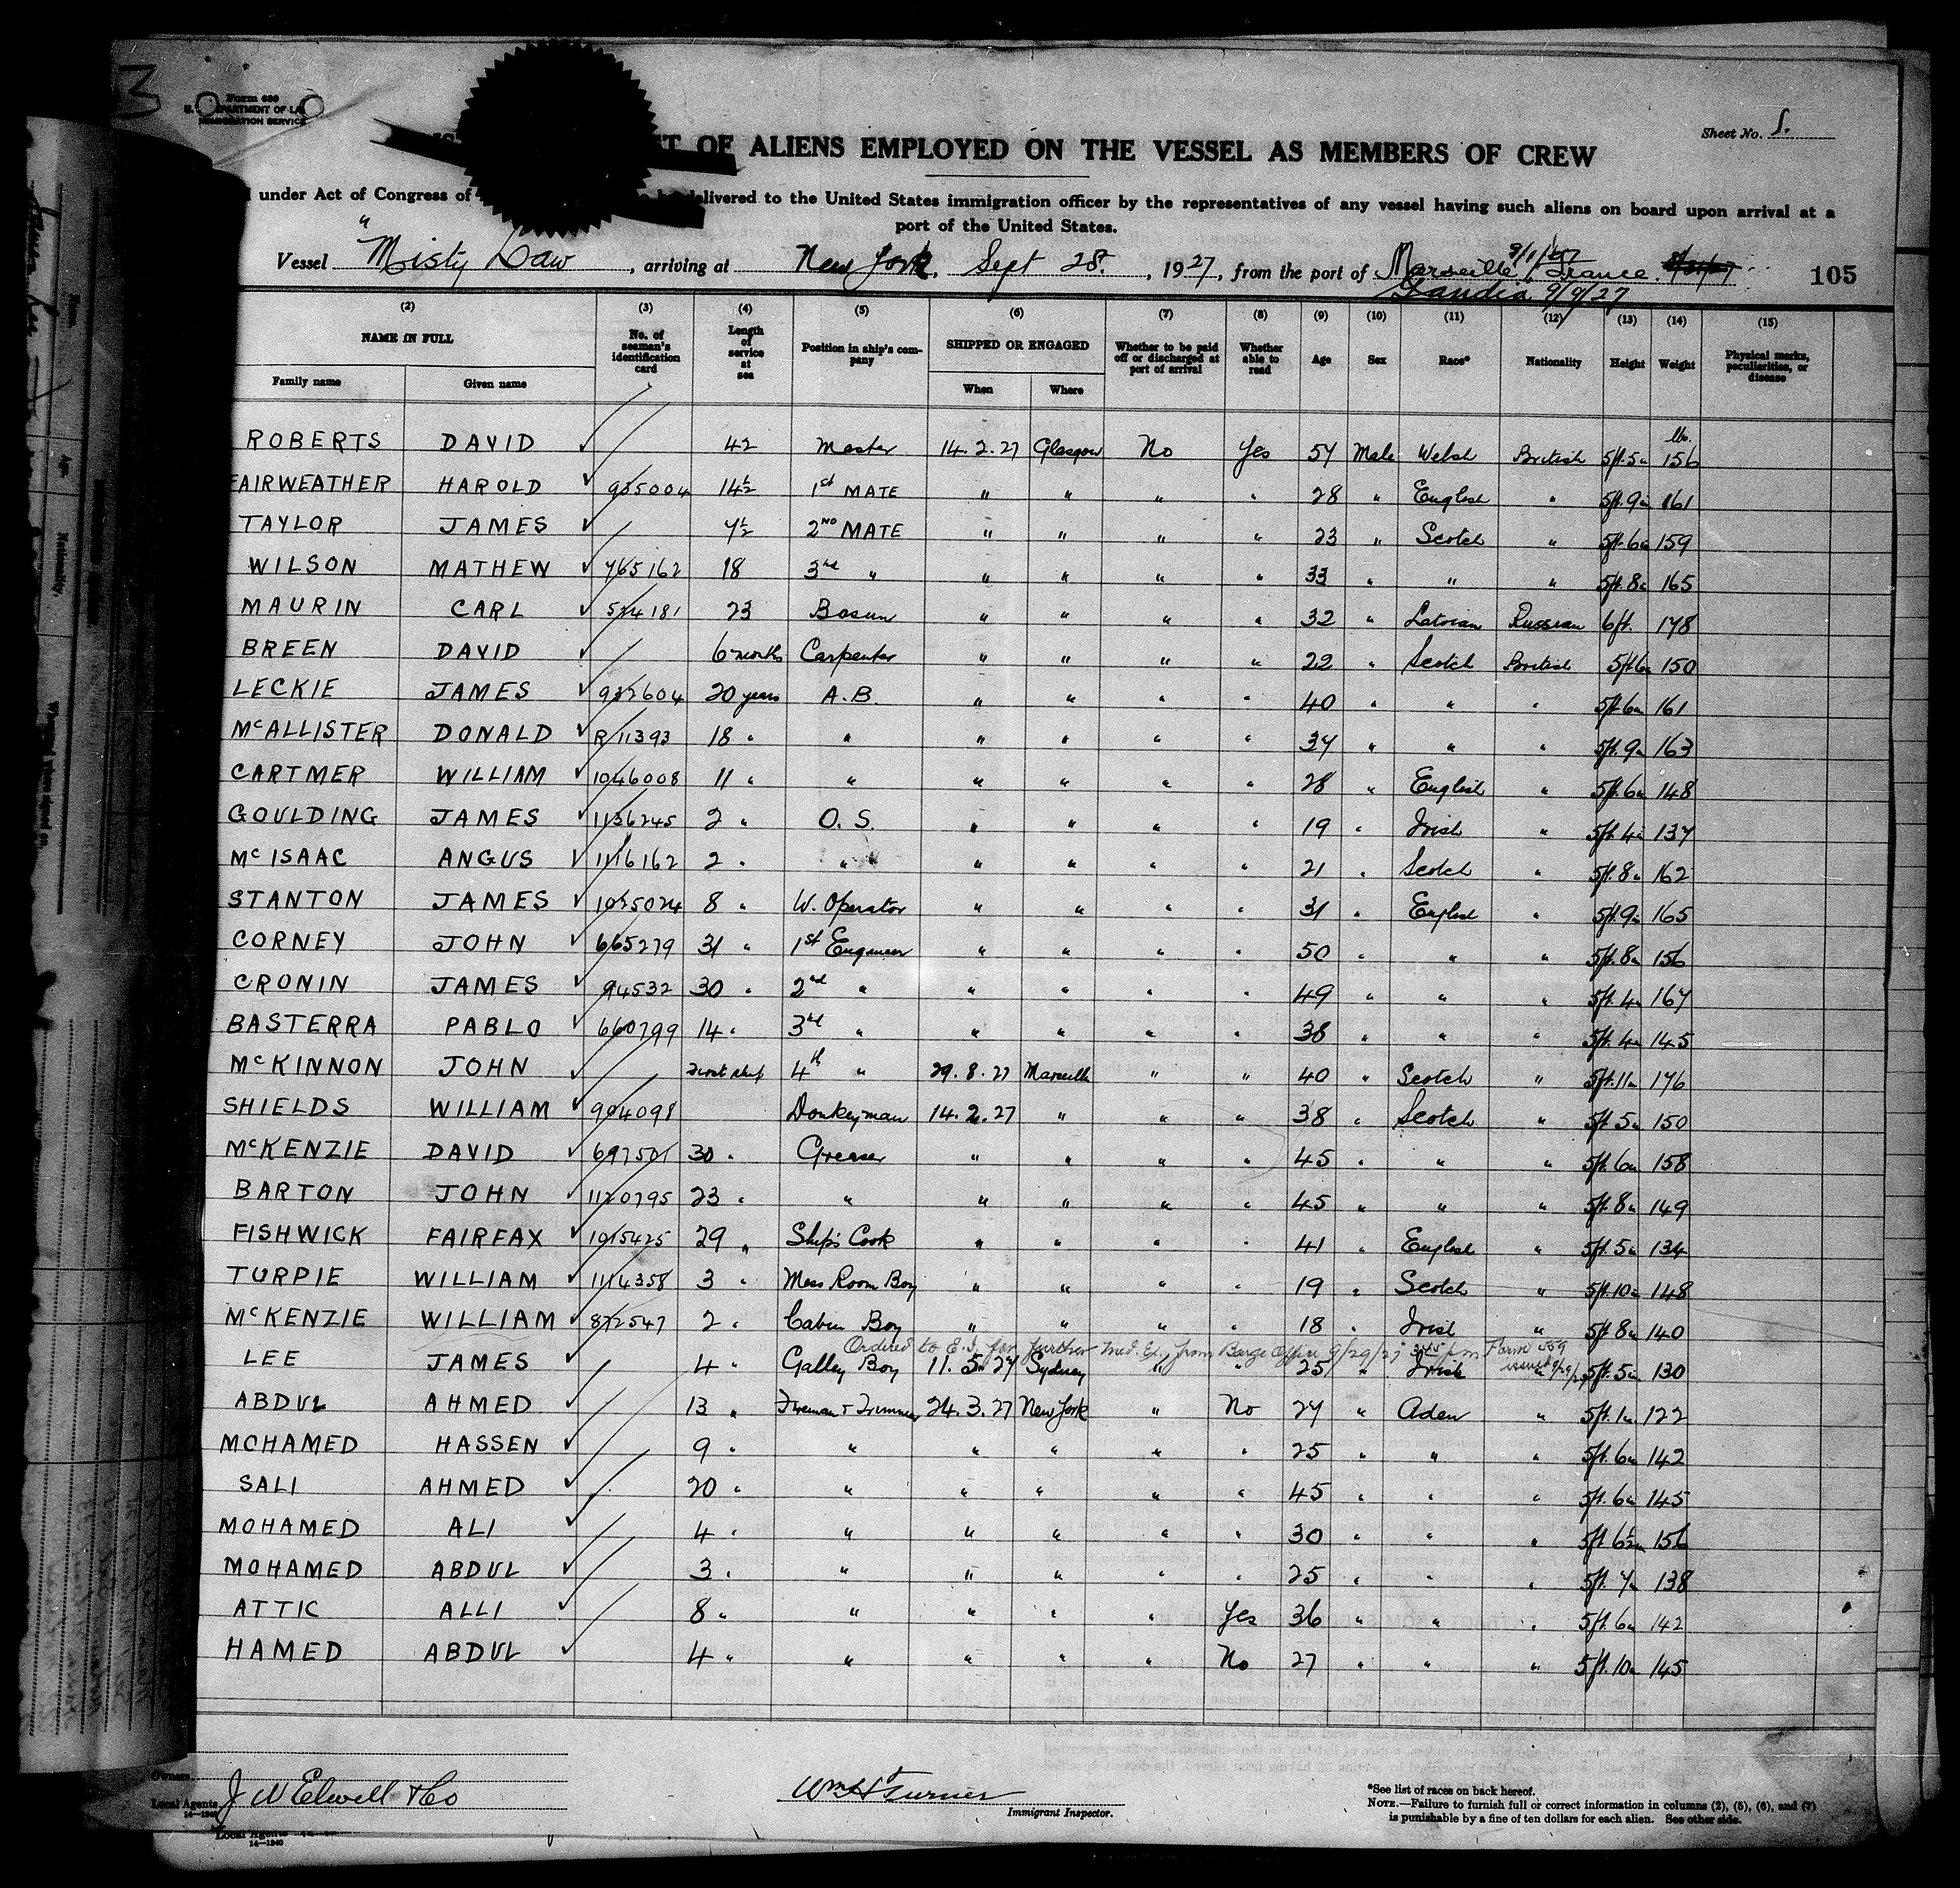 3
Form 680
U. DEPARTMENT OF LA
IMMIGRATION SERVICE
Sheet No. 1.
OF ALIENS EMPLOYED ON THE VESSEL AS MEMBERS OF CREW
under Act of Congress of delivered to the United States immigration officer by the representatives of any vessel having such aliens on board upon arrival at a
port of the United States.
Vessel "Misty Law , arriving at New York, Sept 28th. , 1927, from the port of Marseille France.
Gandia 9/9/27
105
(2) (3) (4) (5) (6) (7) (8) (9) (10) (11) (12) (13) (14) (15)
NAME IN FULL No. of seaman's identification card Length of service at sea Position in ship's company SHIPPED OR ENGAGED Whether to be paid off or discharged at port of arrival Whether able to read Age Sex Race* Nationality Height Weight Physical marks, peculiarities, or disease
Family name Given name When Where
ROBERTS DAVID ✓ 42 Master 14.2.27 Glasgow No Yes 54 Male Welsh British 5ft.5in lbs. 156
FAIRWEATHER HAROLD ✓ 935004 14½ 1st MATE " " " " 28 " English " 5ft.9in 161
TAYLOR JAMES ✓ 4½ 2ND MATE " " " " 23 " Scotch " 5ft.6in 159
WILSON MATHEW ✓ 765162 18 3rd " " " " " 33 " " " 5ft.8in 165
MAURIN CARL ✓ 524181 23 Bosun " " " " 32 " Latvian Russian 6ft. 178
BREEN DAVID ✓ 6 months Carpenter " " " " 22 " Scotch British 5ft6in 150
LECKIE JAMES ✓ 932604 20 years A.B. " " " " 40 " " " 5ft.6in 161
McALLISTER DONALD ✓ R/11393 18 " " " " " " 34 " " " 5ft.9in 163
CARTMER WILLIAM ✓ 1046008 11 " " " " " " 28 " English " 5ft.6in 148
GOULDING JAMES ✓ 1136245 2 " O.S. " " " " 19 " Irish " 5ft.4in 137
McISAAC ANGUS ✓ 1116162 2 " " " " " " 21 " Scotch " 5ft.8in 162
STANTON JAMES ✓ 1025024 8 " W. Operator " " " " 31 " English " 5ft.9in 165
CORNEY JOHN ✓ 665279 31 " 1st Engineer " " " " 50 " " " 5ft.8in 156
CRONIN JAMES ✓ 94532 30 " 2nd " " " " " 49 " " " 5ft.4in 167
BASTERRA PABLO ✓ 660799 14 " 3rd " " " " " 38 " " " 5ft.4in 145
McKINNON JOHN ✓ First ship 4th " 29.8.27 Marseille " " 40 " Scotch " 5ft.11in 176
SHIELDS WILLIAM ✓ 904098 Donkeyman 14.2.27 " " " 38 " Scotch " 5ft.5in 150
McKENZIE DAVID ✓ 697501 30 " Greaser " " " " 45 " " " 5ft.6in 158
BARTON JOHN ✓ 1120795 23 " " " " " " 45 " " " 5ft.8in 149
FISHWICK FAIRFAX ✓ 1015425 29 " Ship's Cook " " " " 41 " English " 5ft.5in 134
TURPIE WILLIAM ✓ 1114358 3 " Mess Room Boy " " " " 19 " Scotch " 5ft.10in 148
McKENZIE WILLIAM ✓ 872547 2 " Cabin Boy " " " " 18 " Irish " 5ft.8in 140
Ordered to E.I. for further Med. Ex. from Barge Office 9/29/27 345 pm Form 559 issued 9/29/27
LEE JAMES ✓ 4 " Galley Boy 11.5.27 Sydney " " 25 " Irish " 5ft.5in 130
ABDUL AHMED ✓ 13 " Fireman & Trimmer 24.3.27 New York " No 27 " Aden " 5ft.1in 122
MOHAMED HASSEN ✓ 9 " " " " " " 25 " " " 5ft.6in 142
SALI AHMED ✓ 20 " " " " " " 45 " " " 5ft.6in 145
MOHAMED ALI ✓ 4 " " " " " " 30 " " " 5ft.6½in 156
MOHAMED ABDUL ✓ 3 " " " " " " 25 " " " 5ft.7in 138
ATTIC ALLI ✓ 8 " " " " " Yes 36 " " " 5ft.6in 142
HAMED ABDUL ✓ 4 " " " " " No 27 " " " 5ft.10in 145
Owners
Local Agents J W Elwell & Co
14—1240
Wm H Turner
Immigrant Inspector.
*See list of races on back hereof.
NOTE.—Failure to furnish full or correct information in columns (2), (5), (6), and (7)
is punishable by a fine of ten dollars for each alien. See other side.
Local Agents
14—1240